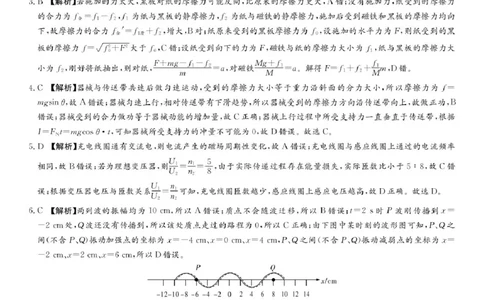 3. B 【解析】若施加的力太大,某板对纸的摩擦力可能反向,比原来的摩擦力更大,A错;没有施加力,纸受到的摩擦力
的合力为 f₁₀=f₁-f₂,f₁为纸与黑板的静摩擦力,f₂为纸与磁铁的静摩擦力,施加后受到磁铁和黑板的摩擦力均向
下,故摩擦力的合力 增大,B对;纸原来受到的黑板摩擦力为 设施加的水平力为F,则纸受到的黑
板的摩擦力 f=√ +F² 大于 C错;设纸受到向下的力为F,磁铁与纸的摩擦力大小为f₂,纸与黑板的摩擦力大
小为f₁,刚好将纸抽出,则对纸,(F+mg-f₁-f₂)/m=a,对磁铁(Mg+f₂)/M=a。解得F=f₁+f₂+(f₂/M)m,D错。
4. C 【解析】器械与传送带共速后做匀速运动,受到的摩擦力大小等于重力沿斜面的分力大小,所以摩擦力为 f=
mgsin θ,故A错误;器械匀速上行,相对传送带有下滑趋势,所以器械受到的摩擦力方向沿传送带向上,故做正功,B
错误;器械受到的合力做功等于器械动能的增加量,故C正确;器械上行过程中所受支持力一直垂直于传送带,根据
I=FNt=mgcos θ·t,可知器械所受支持力的冲量不可能为0,故D错误。故选C。
5. D 【解析】充电线圈通有交流电,则电流产生的磁场周期性变化,故A错误;充电线圈与感应线圈上通过的电流频率
相同,故B错误;若为理想变压器,则U₁/U₂=n₁/n₂=5/8,由于实际传送过程存在能量损失,实际匝数比小于5∶8,故C错
误;根据变压器电压与匝数关系U₁/U₂=n₁/n₂可知,充电线圈匝数越少,感应线圈上感应电压越高,故D正确。故选D。
6. C 【解析】两列波的振幅均为10 cm,所以A错误;质点不会随波迁移,所以B错误;t=2 s时P波刚传播到x=
-2 cm处,Q波还没有传播到,所以该处质点走过的路程为0,所以C正确;由下图中某时刻的波形图可知,P、Q之
间(不含P、Q)振动加强点的坐标为x=-4 cm、x=0 cm、x=4 cm,P、Q之间(不含P、Q)振动减弱点的坐标为x=
-2 cm、x=2 cm、x=6 cm,所以D错误。
P Q
x/cm
-12-10-8 -6 -4 -2 0 2 4 6 8 10 12 14